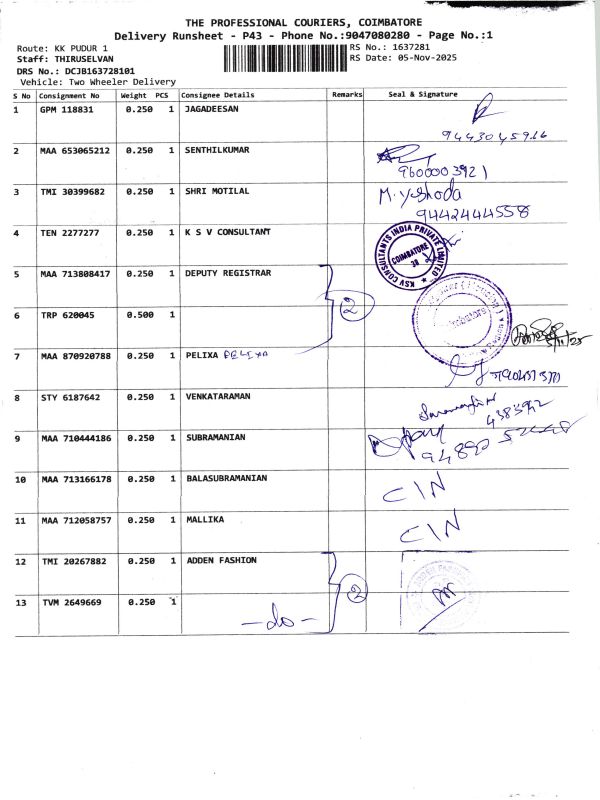 THE PROFESSIONAL COURIERS, COIMBATORE
Delivery Runsheet - P43 - Phone No.:9047080280 - Page No.:1
Route: KK PUDUR 1 RS No.: 1637281
Staff: THIRUSELVAN RS Date: 05-Nov-2025
DRS No.: DCJB163728101
Vehicle: Two Wheeler Delivery
S No Consignment No Weight PCS Consignee Details Remarks Seal & Signature
1 GPM 118831 0.250 1 JAGADEESAN
2 MAA 653065212 0.250 1 SENTHILKUMAR
9600003921
3 TMI 30399682 0.250 1 SHRI MOTILAL M. Yeshoda
9442444558
4 TEN 2277277 0.250 1 K S V CONSULTANT
KSV CONSULTANTS INDIA PRIVATE LIMITED
COIMBATORE
38
5 MAA 713808417 0.250 1 DEPUTY REGISTRAR
2
6 TRP 620045 0.500 1
7 MAA 870920788 0.250 1 PELIXA PELIXA
8 STY 6187642 0.250 1 VENKATARAMAN
9 MAA 710444186 0.250 1 SUBRAMANIAN
10 MAA 713166178 0.250 1 BALASUBRAMANIAN C\N
11 MAA 712058757 0.250 1 MALLIKA C\N
12 TMI 20267882 0.250 1 ADDEN FASHION
2
13 TVM 2649669 0.250 1 -do-